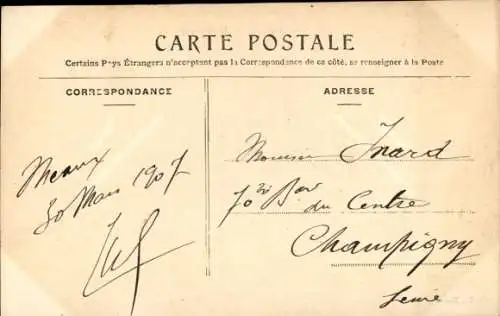 CARTE POSTALE
Certains Pays Étrangers n'acceptent pas la Correspondance de ce côté, se renseigner à la Poste
CORRESPONDANCE
ADRESSE
Meaux
30 Mars 1907
Monsieur Inard
70 bis Bard
du Centre
Champigny
Seine